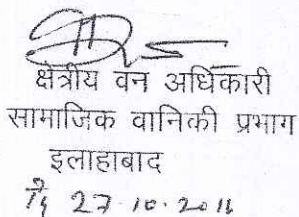 क्षेत्रीय वन अधिकारी
सामाजिक वानिकी प्रभाग
इलाहाबाद
27.10.2016